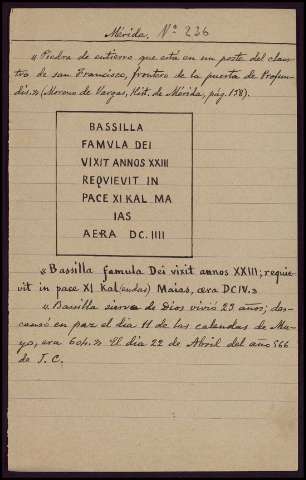 Mérida. Nº 236
"Piedra de entierro que está en un poste del claus-
tro de san Francisco, frontero de la puerta de Profun-
dis." (Moreno de Vargas, Hist. de Mérida, pág. 158).
BASSILLA
FAMVLA DEI
VIXIT ANNOS XXIII
REQVIEVIT IN
PACE XI KAL MA
IAS
AERA DC. IIII
"Bassilla famula Dei vixit annos XXIII; requie-
vit in pace XI Kal(endas) Maias, æra DCIV."
"Bassilla sierva de Dios vivió 23 años; des-
cansó en paz el día 11 de las calendas de Ma-
yo, era 604." El día 22 de Abril del año 566
de J. C.